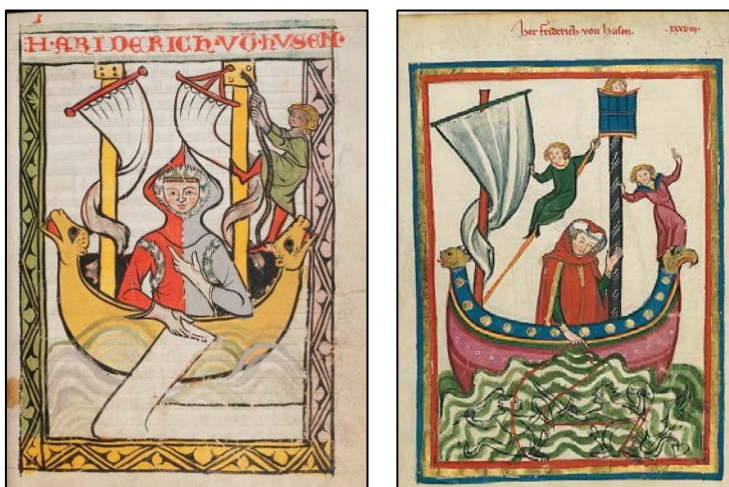 H·FRIDERICH·VŌ·HVSEN·
her friderich von husen.